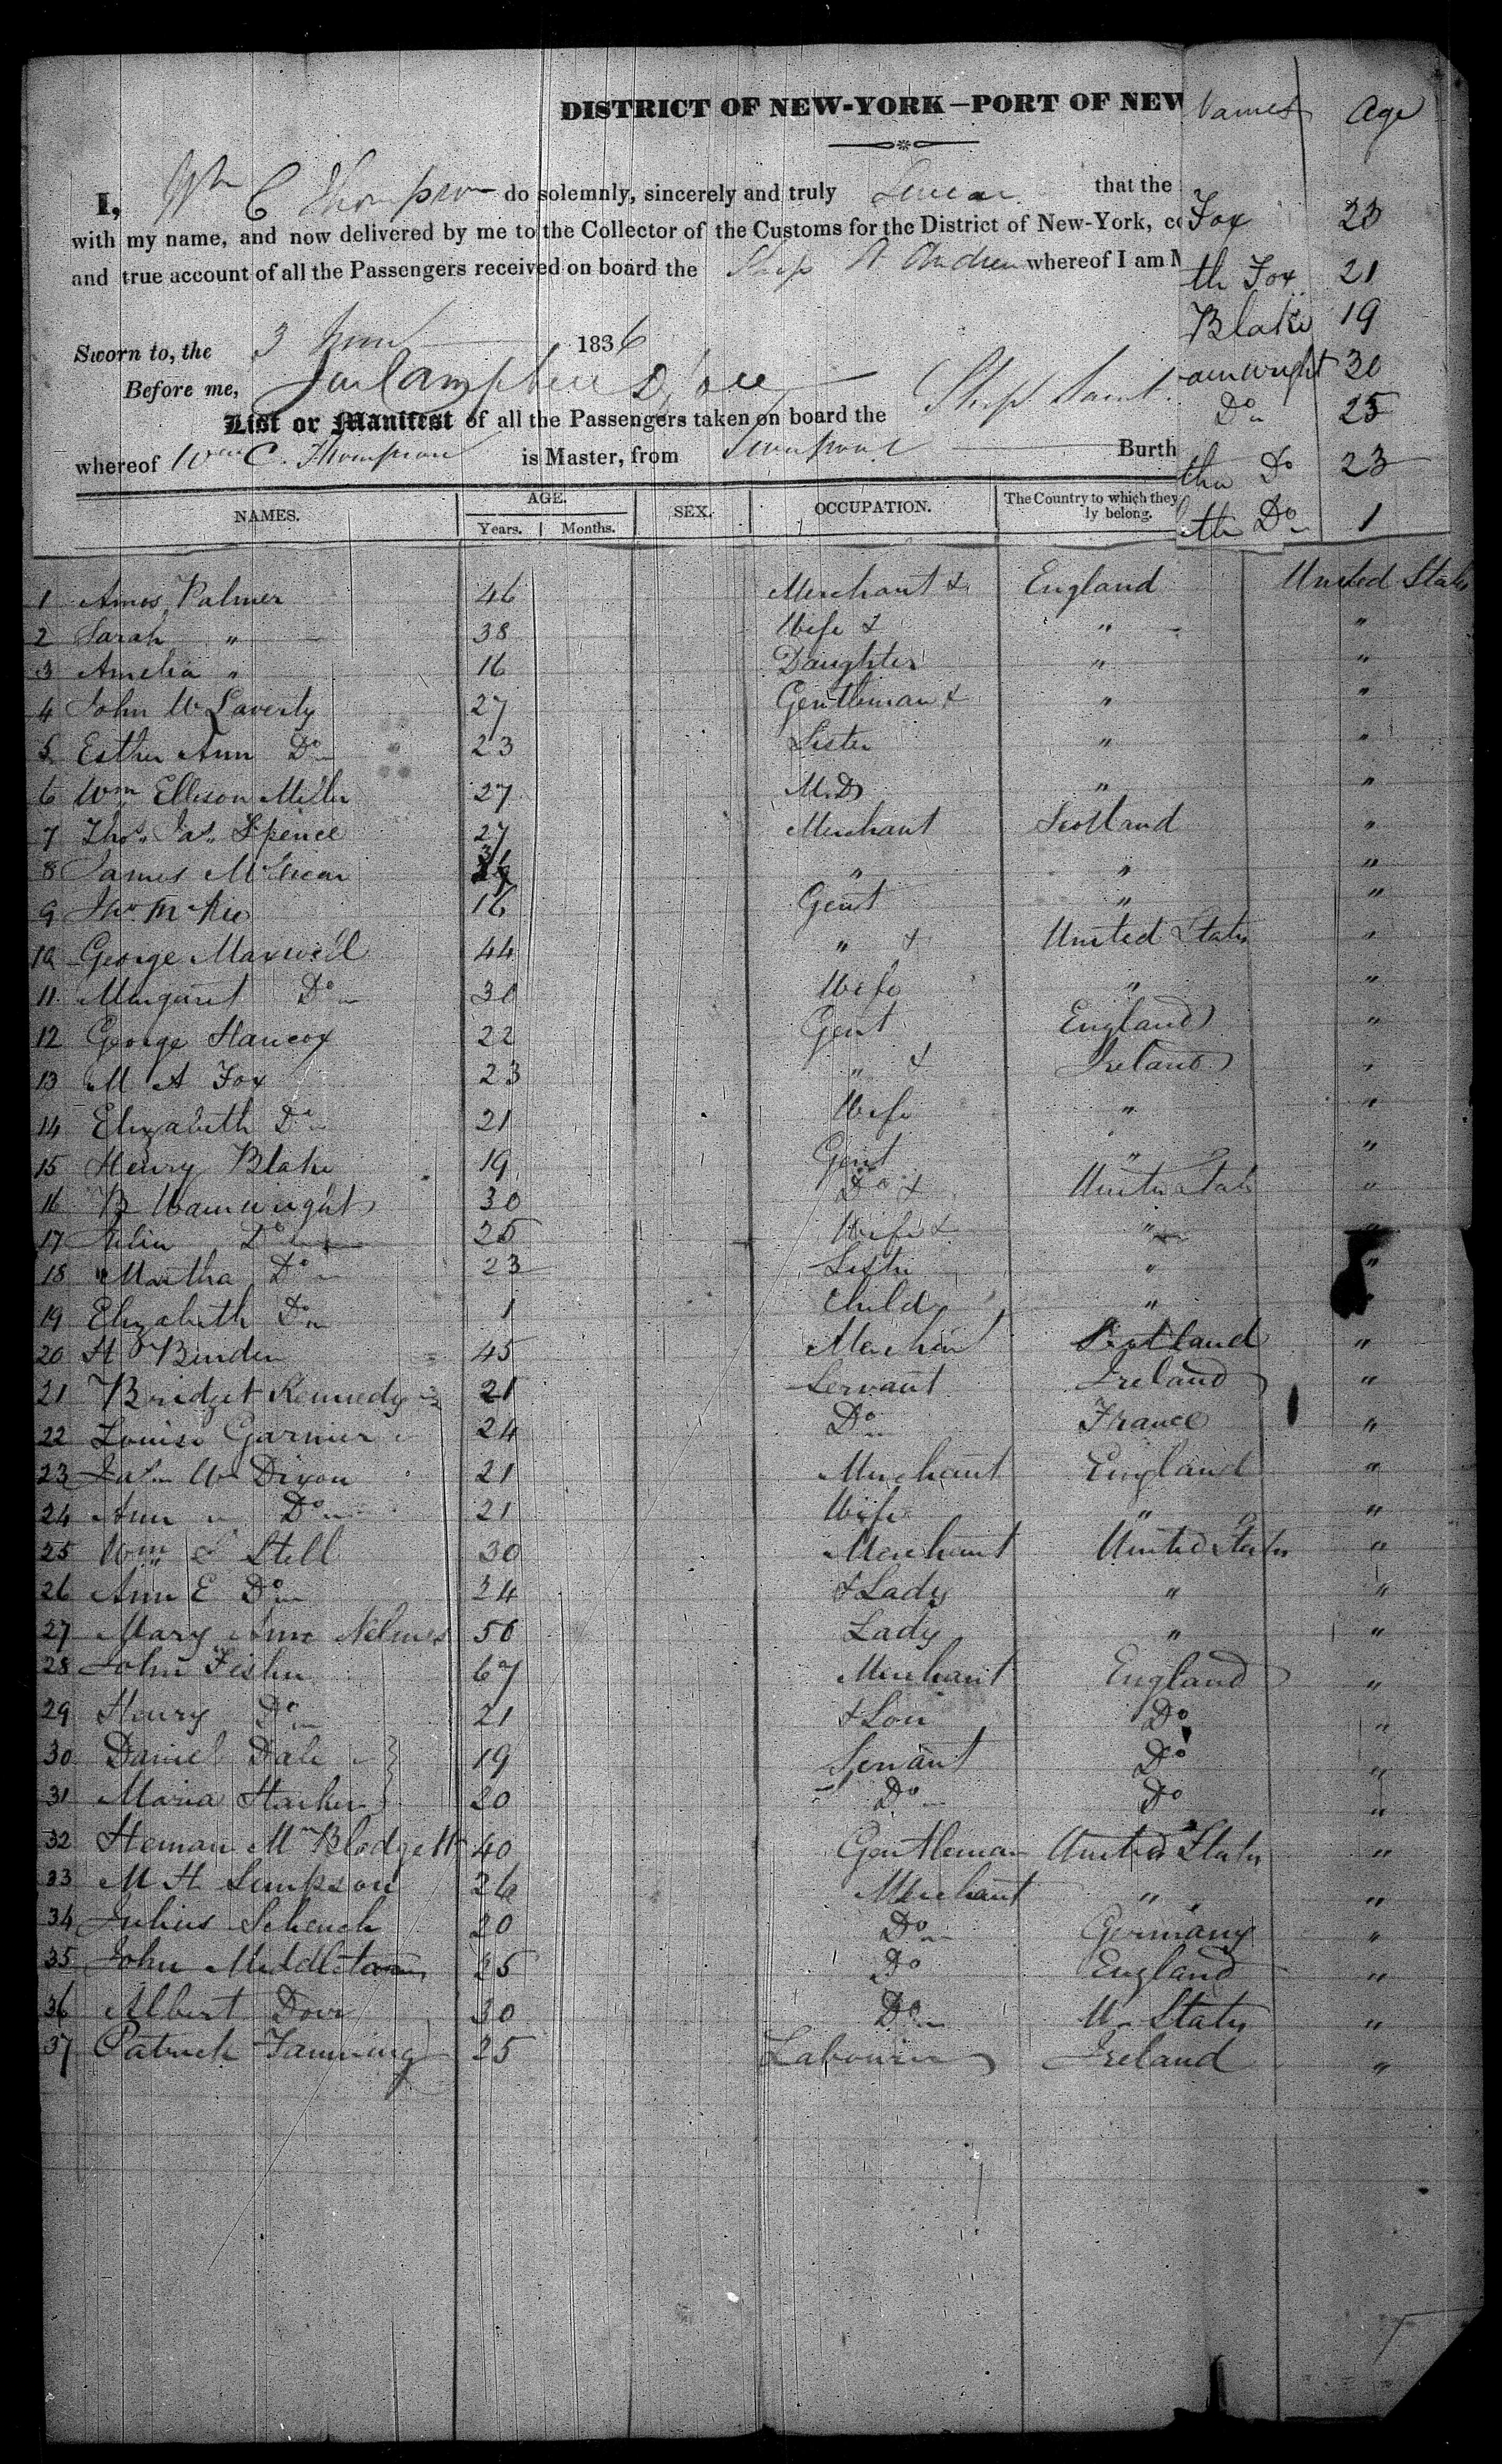 DISTRICT OF NEW-YORK—PORT OF NEW
I, Wm C Thompson do solemnly, sincerely and truly Swear that the
with my name, and now delivered by me to the Collector of the Customs for the District of New-York, co
and true account of all the Passengers received on board the Ship St Andrew whereof I am M
Sworn to, the 3 1836
Before me,
List or Manifest of all the Passengers taken on board the Ship Saint
whereof Wm C. Thompson is Master, from Liverpool Burth
NAMES. AGE. Years. Months. SEX. OCCUPATION. The Country to which they ly belong.
Names Age
Fox 23
th Fox 21
Blake 19
ainwright 30
Do 25
tha Do 23
th Do 1
1 Amos Palmer 46 Merchant & England United States
2 Sarah " 38 Wife & " "
3 Amelia " 16 Daughter " "
4 John W Laverty 27 Gentleman & " "
5 Esther Ann Do 23 Sister " "
6 Wm Ellison Miller 27 M.D " "
7 Thos Jas Spence 27 Merchant Scotland "
8 James " " "
9 16 Gent " "
10 George Maxwell 44 " & United States "
11 Margaret Do 30 Wife " "
12 George Hancox 22 Gent England "
13 M A Fox 23 " & Ireland "
14 Elizabeth Do 21 Wife " "
15 Henry Blake 19 Gent " "
16 B Wainwright 30 Do & United States "
17 Do 25 Wife & " "
18 Martha Do 23 Sister " "
19 Elizabeth Do 1 Child " "
20 H 45 Merchant Scotland "
21 Bridget Kennedy 21 Servant Ireland "
22 Louise Garnier 24 Do France "
23 Jas W Dixon 21 Merchant England "
24 Ann Do 21 Wife " "
25 Wm S Stell 30 Merchant United States "
26 Ann E Do 24 & Lady " "
27 Mary Ann Nelmes 50 Lady " "
28 John Fisher 67 Merchant England "
29 Henry Do 21 & Son Do "
30 Daniel Dale 19 Servant Do "
31 Maria Harker 20 Do Do "
32 Heman M Blodgett 40 Gentleman United States "
33 M H Simpson 26 Merchant " "
34 Julius Schenck 20 Do Germany "
35 John Middleton 25 Do England "
36 Albert Dorr 30 Do U States "
37 Patrick Fanning 25 Labourer Ireland "